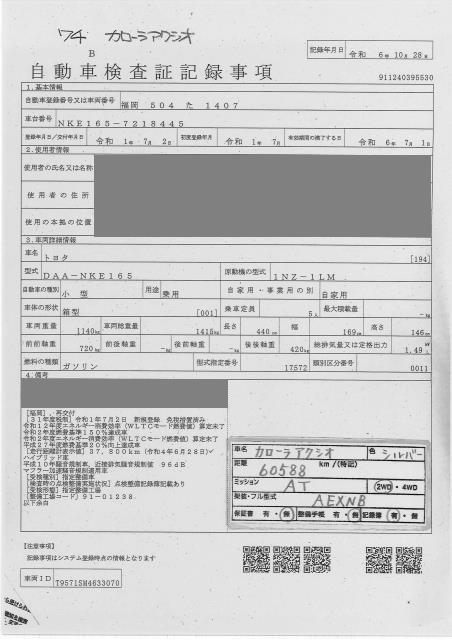 '74 カローラアクシオ
B
記録年月日 令和 6年10月28日
自動車検査証記録事項
911240395530
1.基本情報
自動車登録番号又は車両番号 福岡 504 た 1407
車台番号 NKE165-7218445
登録年月日/交付年月日 令和 1年 7月 2日 初度登録年月 令和 1年 7月 有効期間の満了する日 令和 6年 7月 1日
2.使用者情報
使用者の氏名又は名称
使用者の住所
使用の本拠の位置
3.車両詳細情報
車名 トヨタ [194]
型式 DAA-NKE165 原動機の型式 1NZ-1LM
自動車の種別 小型 用途 乗用 自家用・事業用の別 自家用
車体の形状 箱型 [001] 乗車定員 5人 最大積載量 -kg
車両重量 1140kg 車両総重量 1415kg 長さ 440cm 幅 169cm 高さ 146cm
前前軸重 720kg 前後軸重 -kg 後前軸重 -kg 後後軸重 420kg 総排気量又は定格出力 1.49
燃料の種類 ガソリン 型式指定番号 17572 類別区分番号 0011
4.備考
[福岡],再交付
[31年度税制]令和1年7月2日 新規登録 免税措置済み
令和12年度エネルギー消費効率(WLTCモード燃費値)算定未了
令和2年度燃費基準150%達成車
令和2年度エネルギー消費効率(WLTCモード燃費値)算定未了
平成27年度燃費基準20%向上達成車
[走行距離計表示値]37,800km(令和4年6月28日)
ハイブリッド車
平成10年騒音規制車、近接排気騒音規制値 96dB
マフラー加速騒音規制適用車
[受検種別]指定整備車
[検査時の点検整備実施状況]点検整備記録簿記載あり
[受検形態]指定整備工場
[整備工場コード]91-01238
以下余白
車名 カローラアクシオ 色 シルバー
距離 60588 km/(特記)
ミッション AT 2WD・4WD
架装・フル型式 AEXNB
保証書 有・無 整備手帳 有・無 記録簿 有・無
【注意事項】
記録事項はシステム登録時点の情報となります
車両ID T9571SM4633070